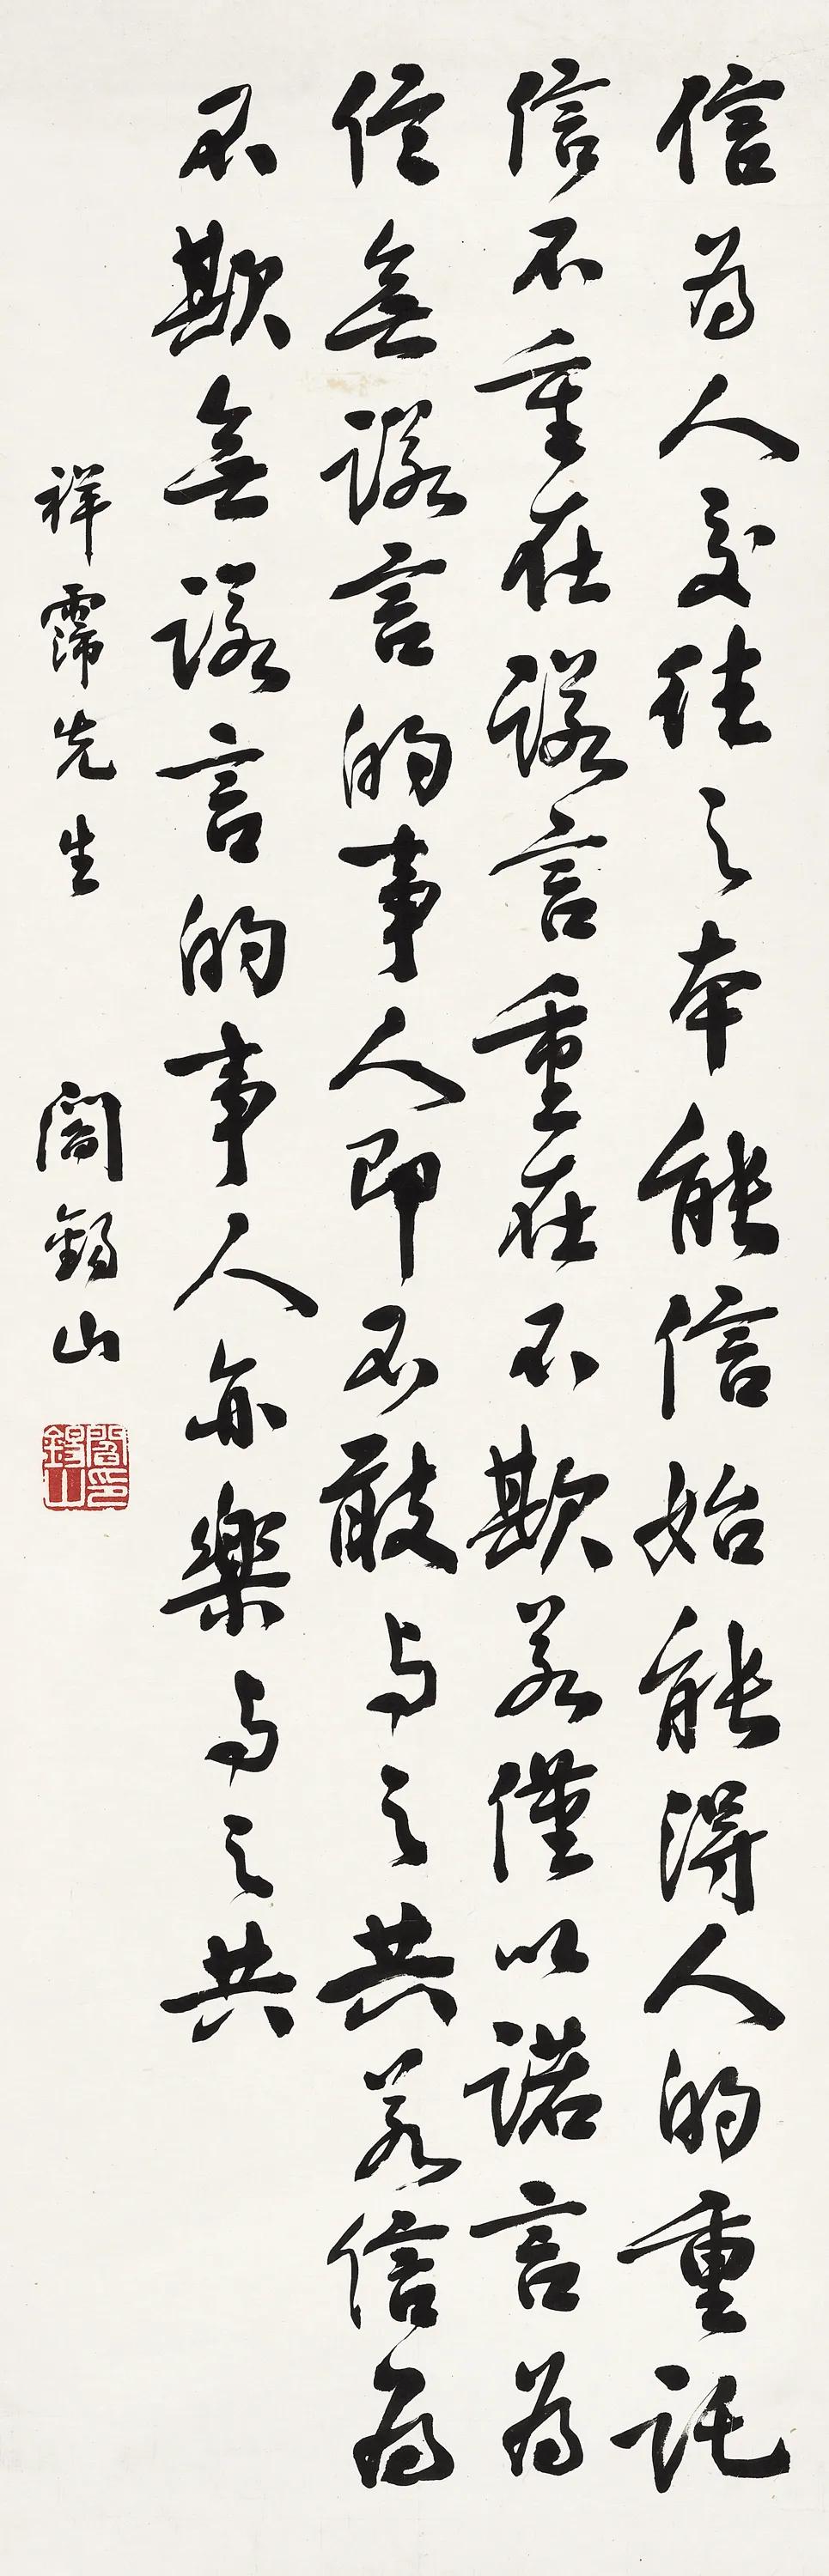 信為人交往之本能信始能得人的重託
信不重在諾言重在不欺若僅以諾言為
信無諾言的事人即不敢与之共若信為
不欺無諾言的事人亦樂与之共
祥霈先生
閻錫山
閻錫山印